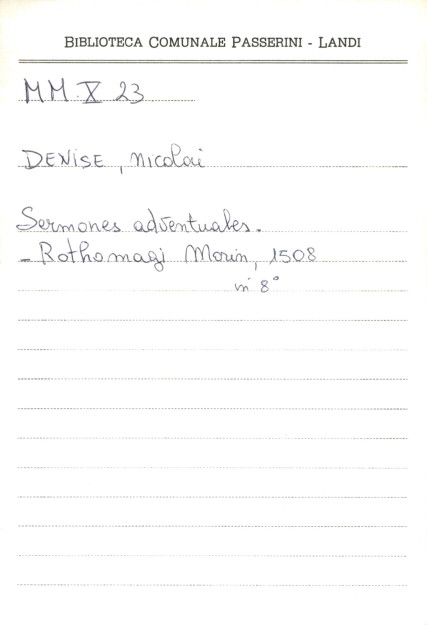 BIBLIOTECA COMUNALE PASSERINI - LANDI
MM. X 23
DENISE, Nicolai
Sermones adventuales.
- Rothomagi Morin, 1508
in 8°